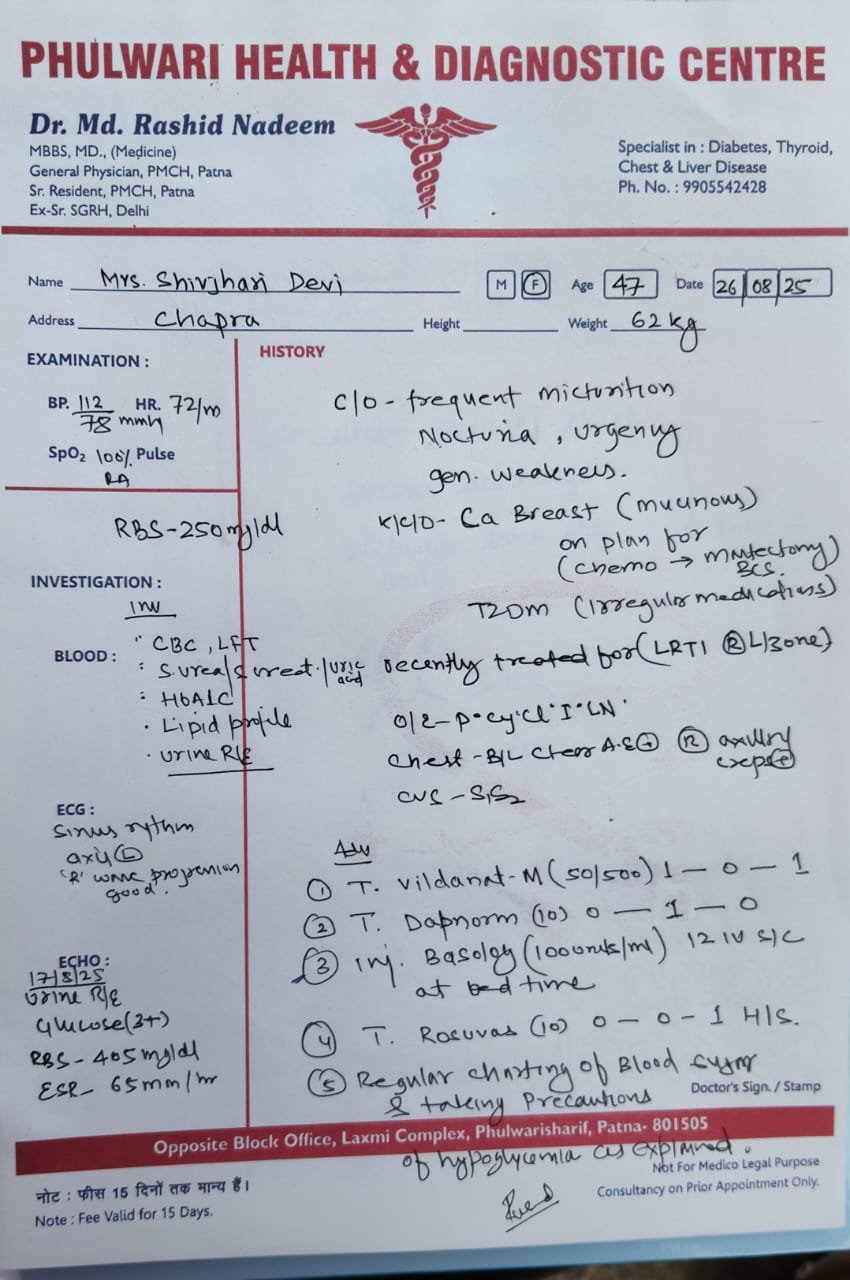 PHULWARI HEALTH & DIAGNOSTIC CENTRE
Dr. Md. Rashid Nadeem
MBBS, MD., (Medicine)
General Physician, PMCH, Patna
Sr. Resident, PMCH, Patna
Ex-Sr. SGRH, Delhi
Specialist in : Diabetes, Thyroid,
Chest & Liver Disease
Ph. No. : 9905542428
Name Mrs. Shivjhari Devi M F Age 47 Date 26/08/25
Address Chapra Height Weight 62 kg
EXAMINATION :
BP. 112/78 mmHg HR. 72/m
SpO2 100% Pulse
RA
RBS-250mg/dl
INVESTIGATION :
Inv
BLOOD :
CBC, LFT
S. urea/S. creat./uric acid
HbA1C
Lipid profile
urine R/E
ECG :
Sinus rythm
axis
'R' wave progression
good.
ECHO :
17/8/25
Urine R/E
Glucose (3+)
RBS - 405 mg/dl
ESR - 65mm/hr
HISTORY
C/O - frequent micturition
Nocturia, urgency
gen. weakness.
K/C/O - Ca Breast (mucinous)
on plan for
(chemo → Mastectomy)
BCS.
T2DM (Irregular medications)
recently treated for (LRTI (R) L/zone)
O/E - P. Cy. Cl. I. LN.
Chest - B/L Clear A.E (+) (R) axillary
creps (+)
CVS - S1S2
Adv
① T. Vildanat-M (50/500) 1 — 0 — 1
② T. Dapnorm (10) 0 — 1 — 0
③ Inj. Basology (100units/ml) 12 IU S/C
at bed time
④ T. Rosuvas (10) 0 — 0 — 1 H/S.
⑤ Regular charting of Blood sugar
& taking Precautions
of hypoglycemia as explained.
Doctor's Sign. / Stamp
Opposite Block Office, Laxmi Complex, Phulwarisharif, Patna- 801505
नोट : फीस 15 दिनों तक मान्य हैं।
Note : Fee Valid for 15 Days.
Not For Medico Legal Purpose
Consultancy on Prior Appointment Only.